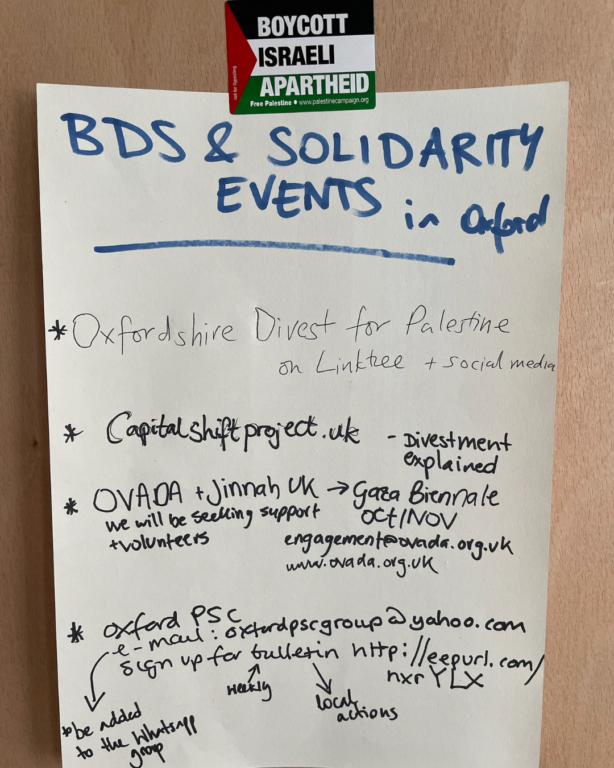 BOYCOTT
ISRAELI
APARTHEID
Free Palestine • www.palestinecampaign.org
BDS & SOLIDARITY
EVENTS in Oxford
* Oxfordshire Divest for Palestine
on Linktree + social media
* Capitalshiftproject.uk - Divestment
explained
* OVADA + Jinnah UK → Gaza Biennale
we will be seeking support OCT/NOV
+volunteers
engagement@ovada.org.uk
www.ovada.org.uk
* oxford PSC
e-mail: oxfordpscgroup@yahoo.com
sign up for bulletin http://eepurl.com/
hxrYLX
weekly
local
actions
to be added
to the WhatsApp
group